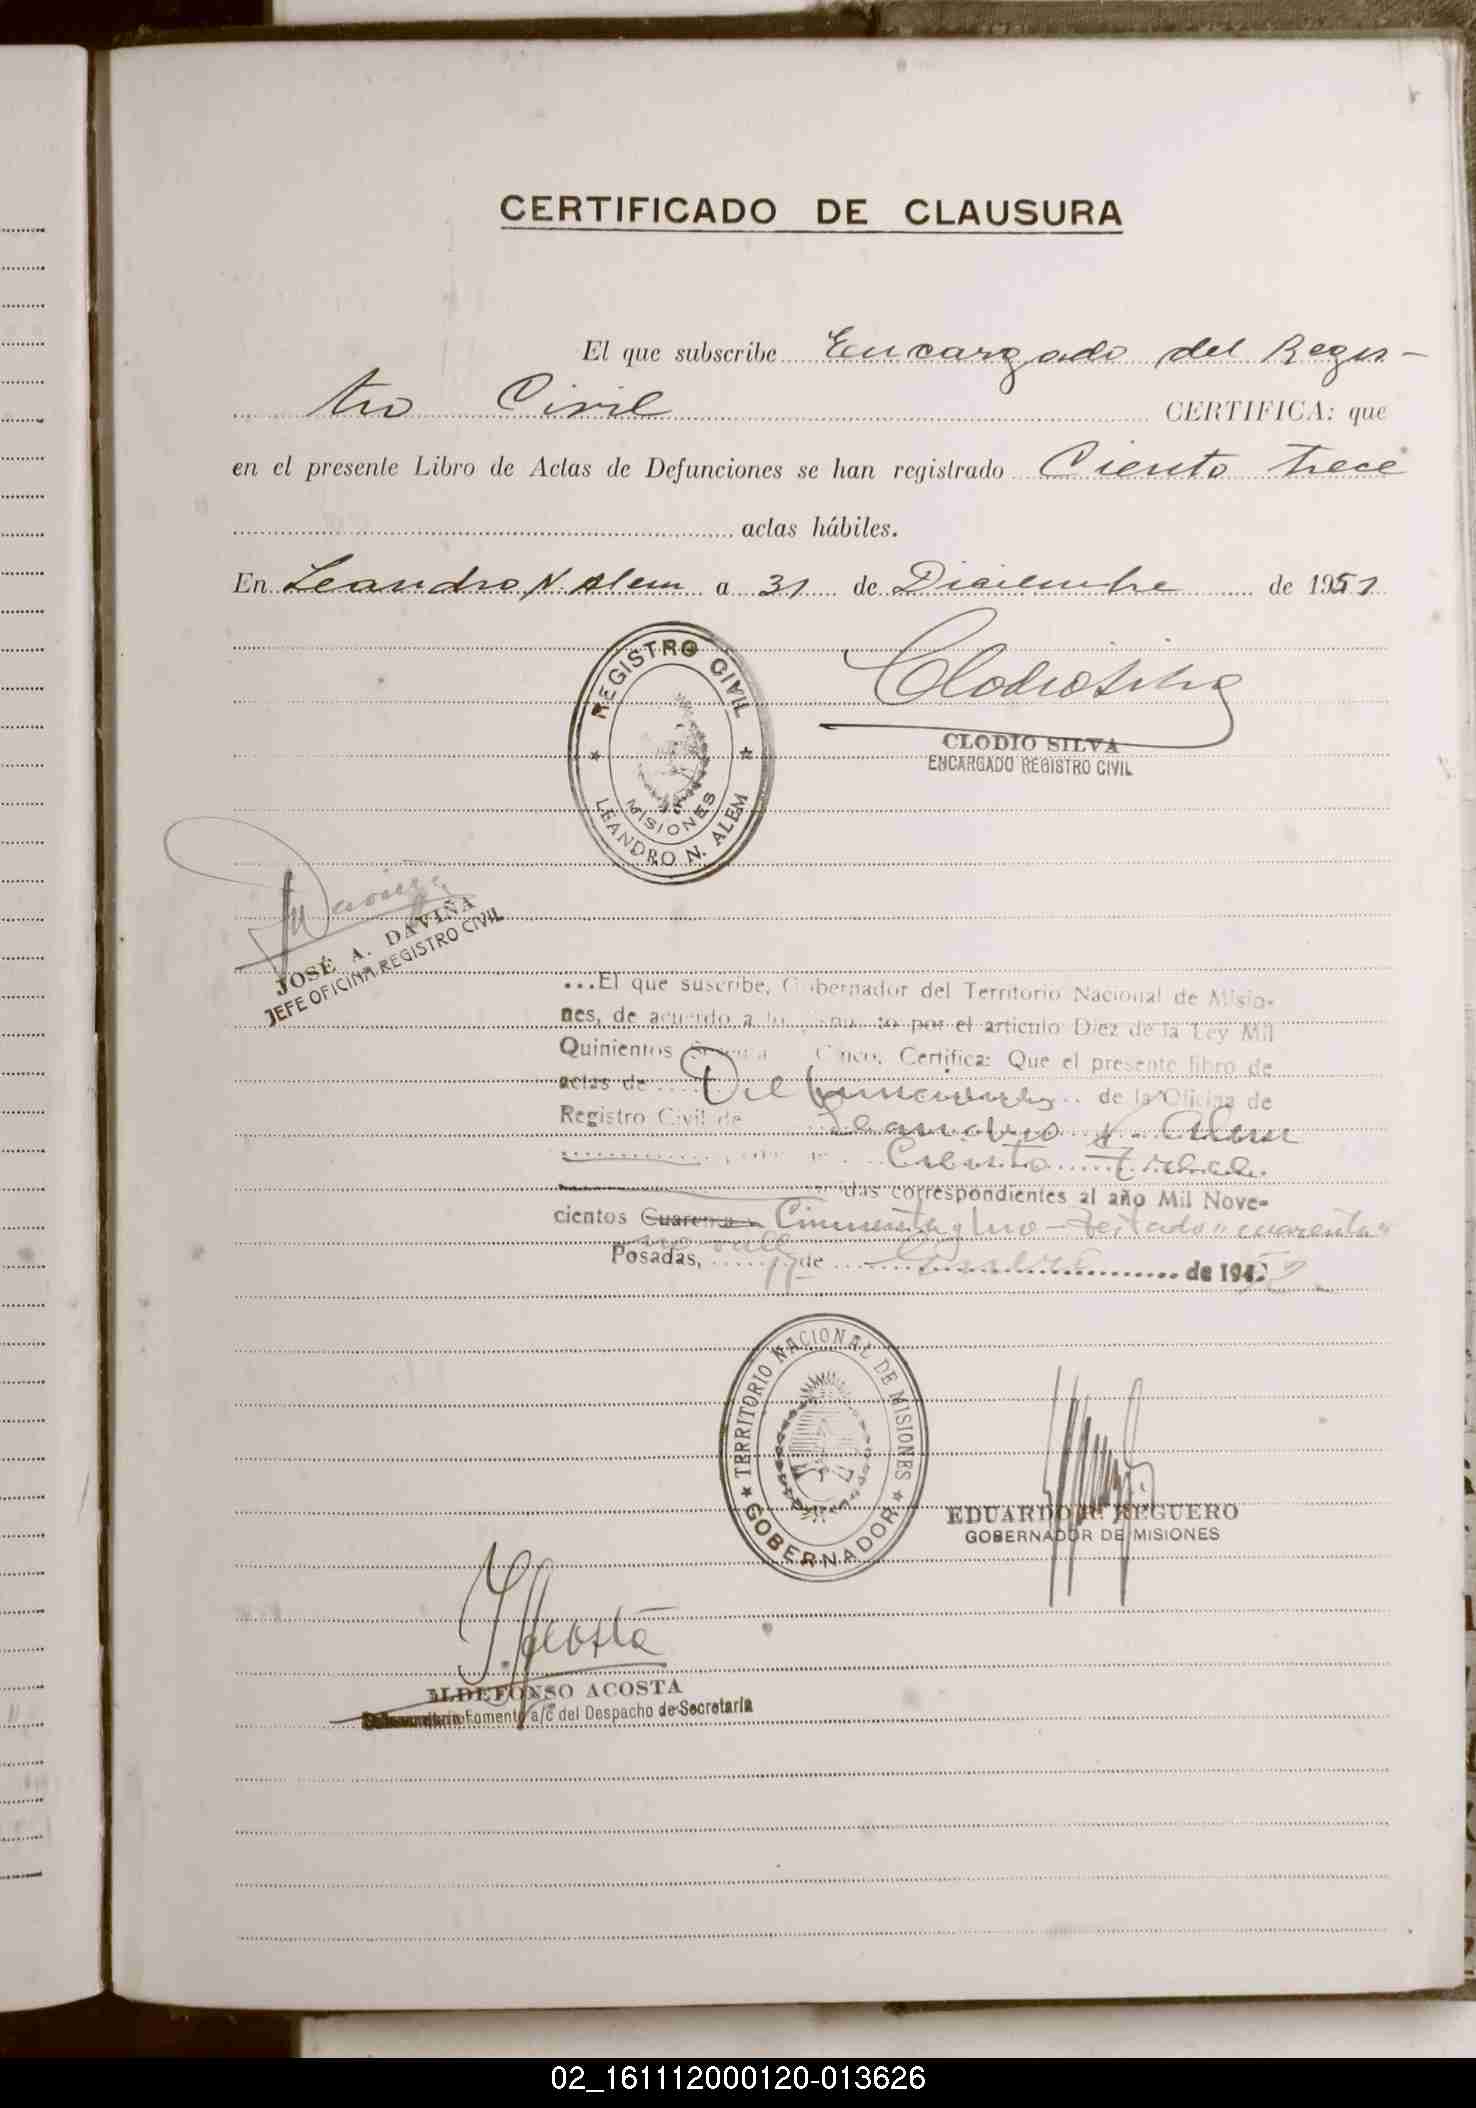 CERTIFICADO DE CLAUSURA
El que subscribe Encargado del Regis-
tro Civil CERTIFICA: que
en el presente Libro de Actas de Defunciones se han registrado Ciento trece
actas hábiles.
En Leandro N. Alem a 31 de Diciembre de 1951
REGISTRO CIVIL
MISIONES
LEANDRO N. ALEM
Clodio Silva
CLODIO SILVA
ENCARGADO REGISTRO CIVIL
JOSÉ A. DAVIÑA
JEFE OFICINA REGISTRO CIVIL
...El que suscribe, Gobernador del Territorio Nacional de Misio-
nes, de acuerdo a lo por el artículo Diez de la Ley Mil
Quinientos Cinco, Certifica: Que el presente libro de
actas de Defunciones de la Oficina de
Registro Civil de Leandro N. Alem
Ciento Trece
das correspondientes al año Mil Nove-
cientos Cuarenta y Cincuenta y Uno - Testado "cuarenta"
no vale
Posadas, de de 194
TERRITORIO NACIONAL DE MISIONES
GOBERNADOR
EDUARDO R. REGUERO
GOBERNADOR DE MISIONES
I. Acosta
ILDEFONSO ACOSTA
Fomento a/c del Despacho de Secretaría
02_161112000120-013626